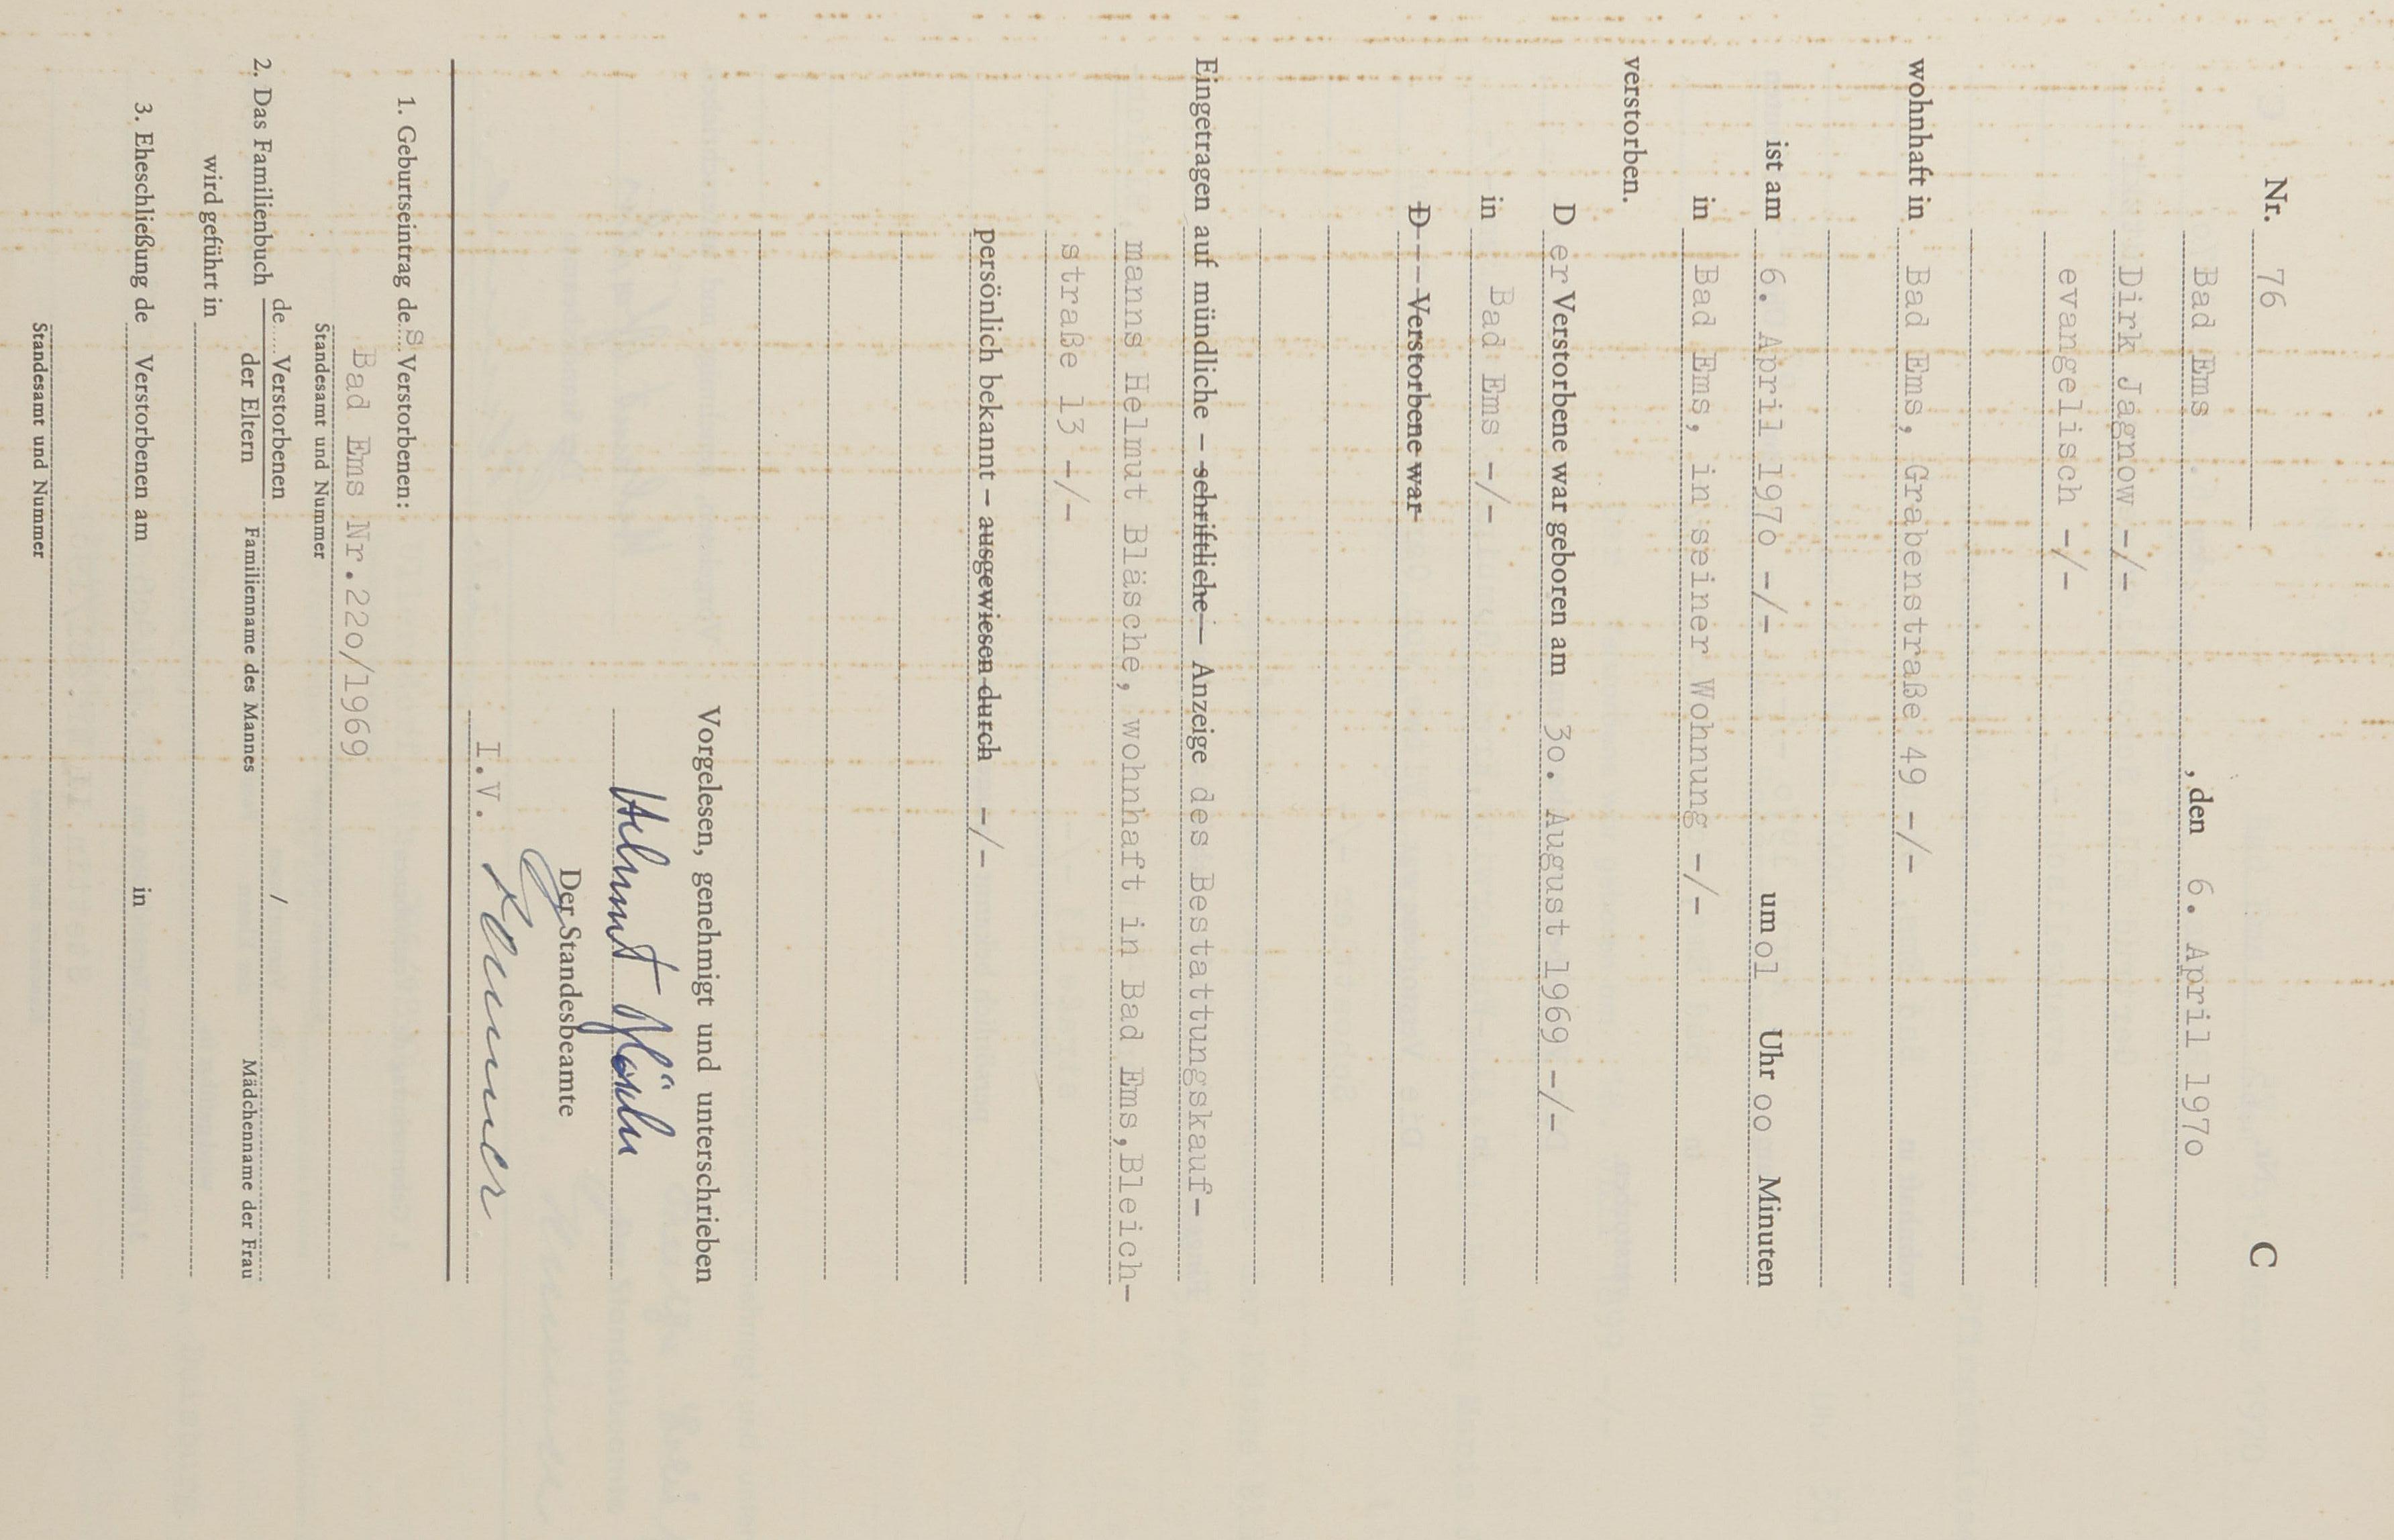 Nr. 76 C
Bad Ems , den 6. April 197o
Dirk Jagnow -/-
evangelisch -/-
wohnhaft in Bad Ems, Grabenstraße 49 -/-
ist am 6. April 197o -/- um o1 Uhr oo Minuten
in Bad Ems, in seiner Wohnung -/-
verstorben.
D er Verstorbene war geboren am 3o. August 1969 -/-
in Bad Ems -/-
D - - - Verstorbene war
Eingetragen auf mündliche – schriftliche – Anzeige des Bestattungskauf-
manns Helmut Bläsche, wohnhaft in Bad Ems,Bleich-
straße 13 -/-
persönlich bekannt – ausgewiesen durch -/-
Vorgelesen, genehmigt und unterschrieben
Helmut Bläsche
Der Standesbeamte
I.V.
1. Geburtseintrag des Verstorbenen:
Bad Ems Nr.22o/1969
Standesamt und Nummer
2. Das Familienbuch de Verstorbenen /
der Eltern Familienname des Mannes Mädchenname der Frau
wird geführt in
3. Eheschließung de Verstorbenen am in
Standesamt und Nummer